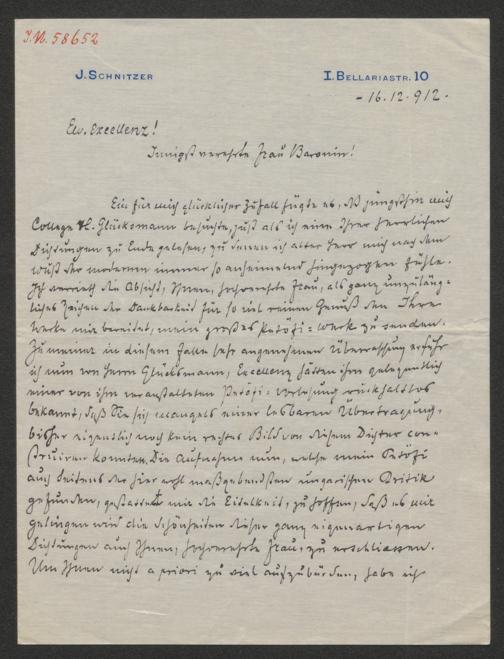 I.N. 58652
J. SCHNITZER
I. BELLARIASTR. 10
- 16. 12. 912. -
Ew. Excellenz!
Innigst verehrte Frau Baronin!
Ein für mich glücklicher Zufall fügte es, daß jüngsthin mich
College H. Glücksmann besuchte, just als ich einen Ihrer herrlichen
Dichtungen zu Ende gelesen, zu denen ich alter Herr mich nach dem
Wust der modernen immer so anheimelnd hingezogen fühle.
Ich verrieth die Absicht, Ihnen, hochverehrte Frau, als ganz unzuläng-
liches Zeichen der Dankbarkeit für so viel reinen Genuß den Ihre
Werke mir bereitet, mein großes Petöfi-Werk zu senden.
Zu meiner in diesem Falle sehr angenehmen Überraschung erfuhr
ich nun von Herrn Glücksmann, Excellenz hätten ihm gelegentlich
einer von ihm veranstalteten Petöfi-Vorlesung rückhaltlos
bekannt, daß Sie sich mangels einer lesbaren Übertragung,
bisher eigentlich noch kein rechtes Bild von diesem Dichter con-
struiren konnten. Die Aufnahme nun, welche mein Petöfi
auch seitens der hier erst maßgebendsten ungarischen Kritik
gefunden, gestattet mir die Eitelkeit, zu hoffen, daß es mir
gelingen wird die Schönheiten dieser ganz eigenartigen
Dichtungen auch Ihnen, hochverehrte Frau, zu erschliessen.
Um Ihnen nicht a priori zu viel aufzubürden, habe ich